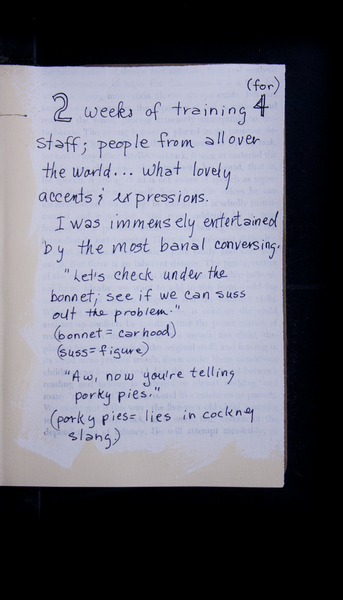 (for)
2 weeks of training 4
staff; people from all over
the world... what lovely
accents; expressions.
I was immensely entertained
by the most banal conversing.
"Let's check under the
bonnet; see if we can suss
out the problem."
(bonnet = carhood)
(suss = figure)
"Aw, now you're telling
porky pies."
(porky pies = lies in cockney
slang)